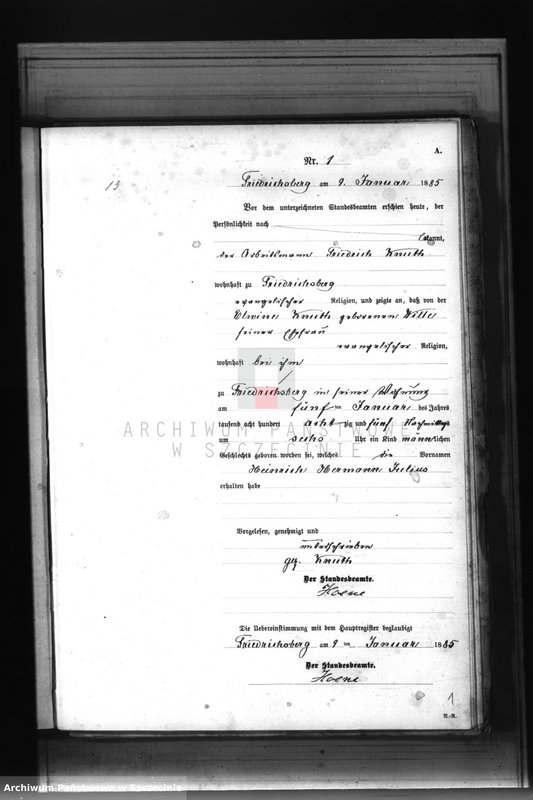 A.
Nr. 1
13
Friedrichsberg am 9. Januar 1885
Vor dem unterzeichneten Standesbeamten erschien heute, der
Persönlichkeit nach
bekannt,
der Arbeitsmann Friedrich Knuth
wohnhaft zu Friedrichsberg
evangelischer Religion, und zeigte an, daß von der
Elwine Knuth geborenen Wille
seiner Ehefrau
evangelischer Religion,
wohnhaft bei ihm
zu Friedrichsberg in seiner Wohnung
am fünften Januar des Jahres
tausend acht hundert achtzig und fünf Nachmittags
um sechs Uhr ein Kind männlichen
Geschlechts geboren worden sei, welches die Vornamen
Heinrich Hermann Julius
erhalten habe
Vorgelesen, genehmigt und
unterschrieben
gez. Knuth
Der Standesbeamte.
Hoene
Die Uebereinstimmung mit dem Hauptregister beglaubigt
Friedrichsberg am 9ten Januar 1885
Der Standesbeamte.
Hoene
1
ARCHIWUM PAŃSTWOWE
W SZCZECINIE
Archiwum Państwowe w Szczecinie